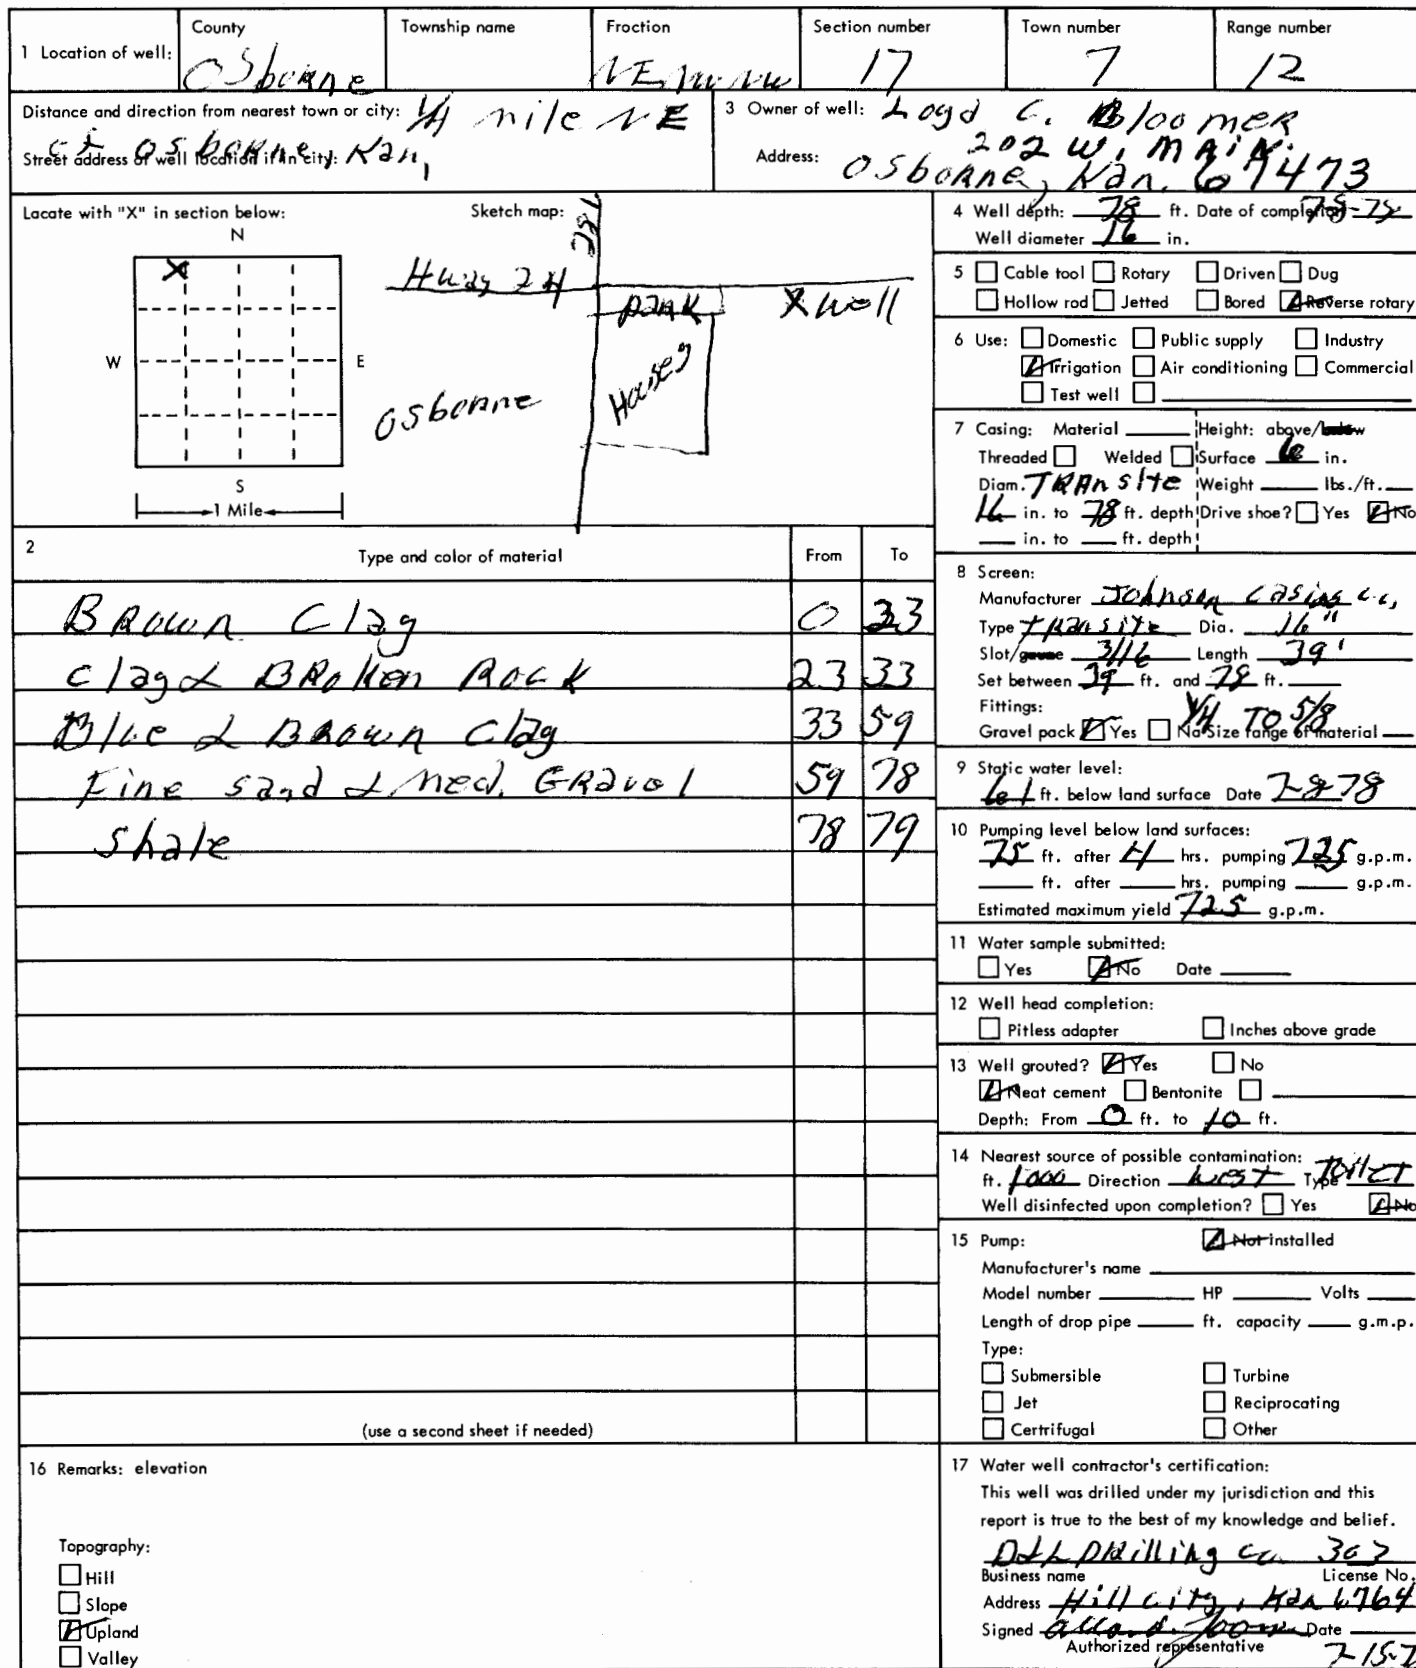 1 Location of well: County Osborne Township name Froction NE NW NW Section number 17 Town number 7 Range number 12
Distance and direction from nearest town or city: 1/4 mile NE
of Osborne, Kan,
Street address of well location if in city:
3 Owner of well: Loyd C. Bloomer
Address: 202 W. Main.
Osborne, Kan. 67473
Lacate with "X" in section below:
N
X
W
E
S
1 Mile
Sketch map:
281
Hway 24
Park
X well
Houses
Osborne
2 Type and color of material From To
Brown Clay 0 23
Clay & Broken Rock 23 33
Blue & Brown Clay 33 59
Fine sand & Med. Gravel 59 78
Shale 78 79
(use a second sheet if needed)
4 Well depth: 78 ft. Date of completion 7-8-78
Well diameter 16 in.
5 Cable tool Rotary Driven Dug
Hollow rod Jetted Bored Reverse rotary
6 Use: Domestic Public supply Industry
Irrigation Air conditioning Commercial
Test well
7 Casing: Material Height: above/below
Threaded Welded Surface in.
Diam. Transite Weight lbs./ft.
16 in. to 78 ft. depth Drive shoe? Yes No
in. to ft. depth
8 Screen:
Manufacturer Johnson Casing Co,
Type Transite Dia. 16"
Slot/gauze 3/16 Length 39'
Set between 39 ft. and 78 ft.
Fittings: 1/4 TO 5/8
Gravel pack Yes No Size range of material
9 Static water level:
61 ft. below land surface Date 7-8-78
10 Pumping level below land surfaces:
75 ft. after 4 hrs. pumping 725 g.p.m.
ft. after hrs. pumping g.p.m.
Estimated maximum yield 725 g.p.m.
11 Water sample submitted:
Yes No Date
12 Well head completion:
Pitless adapter Inches above grade
13 Well grouted? Yes No
Neat cement Bentonite
Depth: From 0 ft. to 10 ft.
14 Nearest source of possible contamination:
ft. 1000 Direction West Type Toilet
Well disinfected upon completion? Yes No
15 Pump: Not installed
Manufacturer's name
Model number HP Volts
Length of drop pipe ft. capacity g.m.p.
Type:
Submersible Turbine
Jet Reciprocating
Certrifugal Other
16 Remarks: elevation
Topography:
Hill
Slope
Upland
Valley
17 Water well contractor's certification:
This well was drilled under my jurisdiction and this
report is true to the best of my knowledge and belief.
D&L Drilling Co. 303
Business name License No.
Address Hill City, Kan 6764
Signed Date
Authorized representative 7-15-7